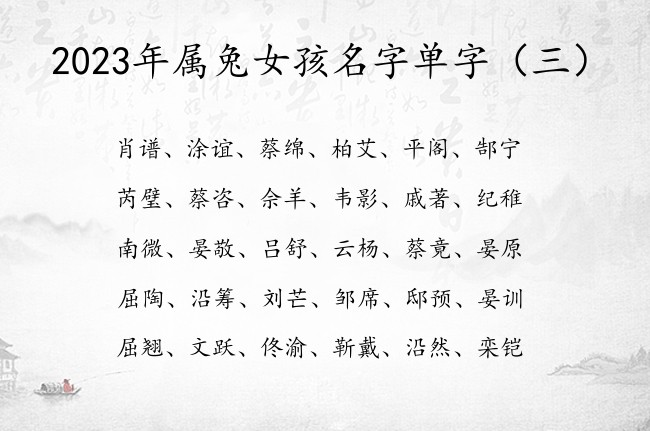 2023年属兔女孩名字单字（三）
肖谱、涂谊、蔡绵、柏艾、平阁、郜宁
芮璧、蔡咨、佘羊、韦影、戚著、纪稚
南微、晏敬、吕舒、云杨、蔡竟、晏原
屈陶、沿筹、刘芒、邹席、邸预、晏训
屈翘、文跃、佟渝、靳戴、沿然、栾铠